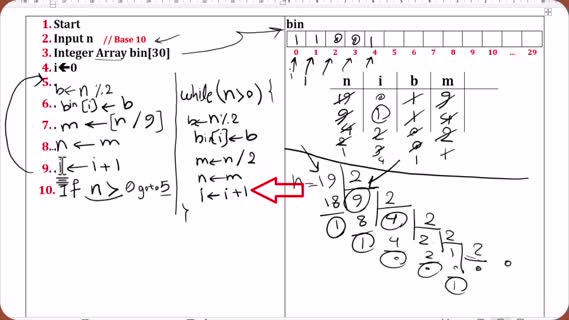 1. Start
2. Input n // Base 10
3. Integer Array bin[30]
4. i←0
5. b←n%2
6. bin[i]←b
7. m←[n/9]
8. n←m
9. i←i+1
10. If n>0 goto 5
while(n>0) {
b←n%2
bin[i]←b
m←n/2
n←m
i←i+1
}
bin
1 1 0 0 1
0 1 2 3 4 5 6 7 8 9 10 ... 29
n i b m
19 0 1 9
9 1 1 4
4 2 0 2
2 3 0 1
1 4 1
n=19 2
18 9 2
1 8 4 2
1 4 2 2
0 2 1 2
0 0 0
1